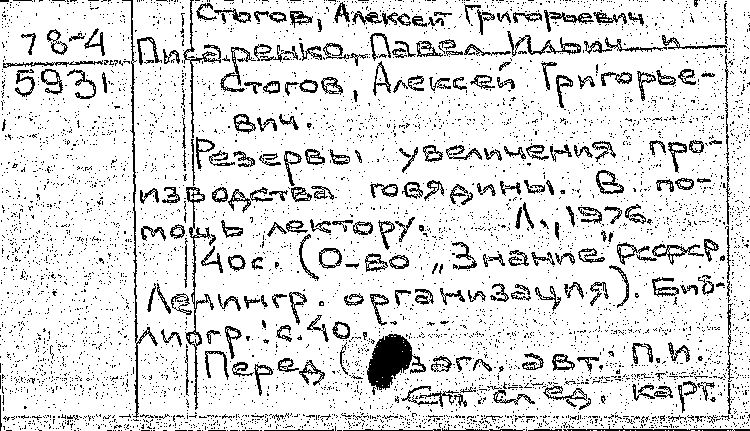 Стогов, Алексей Григорьевич
78-4
Писаренко, Павел Ильич и
5931
Стогов, Алексей Григорье-
вич.
Резервы увеличения про-
изводства говядины. В по-
мощь лектору. Л., 1976.
40с. (О-во „Знание" РСФСР.
Ленингр. организация). Биб-
лиогр.: с. 40.
Перед загл. авт.: П.И.
См. след. карт.